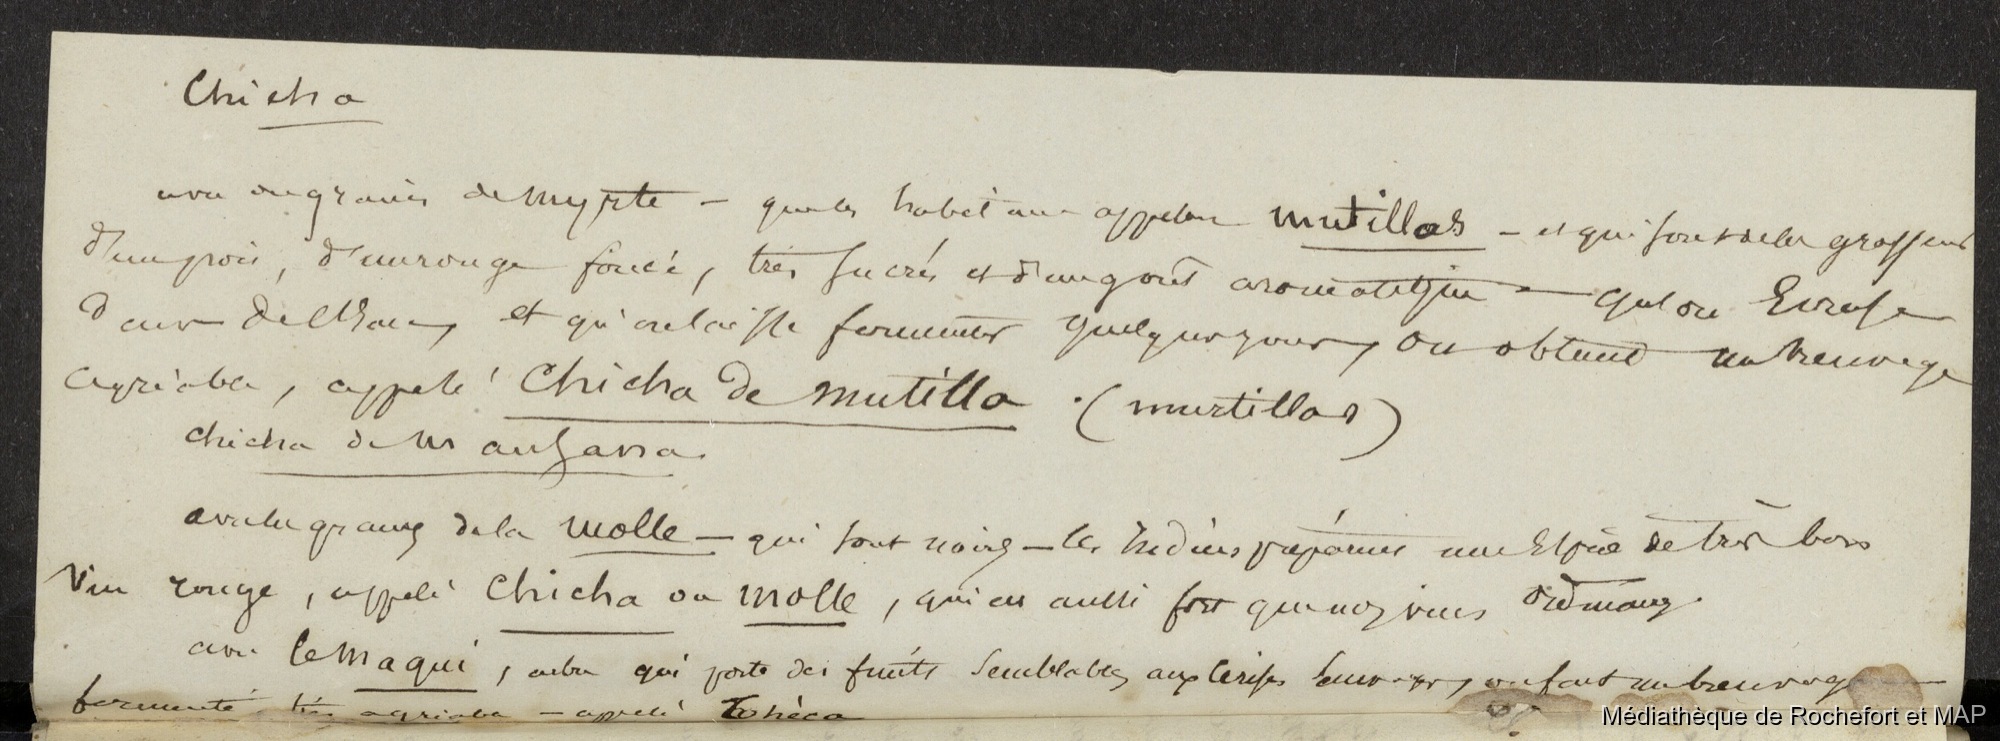 Chicha
avec des graines de myrte – que les habitans appellent mutillas – et qui sont de la grosseur
d'un pois, d'un rouge foncé, très sucrés et d'un goût aromatique – qu'on Ecrase
dans de l'Eau, et qu'on laisse fermenter quelques jours, on obtient un breuvage
agréable, appelé Chicha de mutilla . (murtillas)
chicha de manzana.
avec les graines de la molle – qui sont noires – les Indiens préparent une Espèce de très bon
Vin rouge, appelé Chicha ou molle, qui est aussi fort que nos vins
avec le maqui, arbre qui porte des fruits semblables aux cerises sauvages, on fait un breuvage
fermenté très agréable – appelé Thèca
Médiathèque de Rochefort et MAP